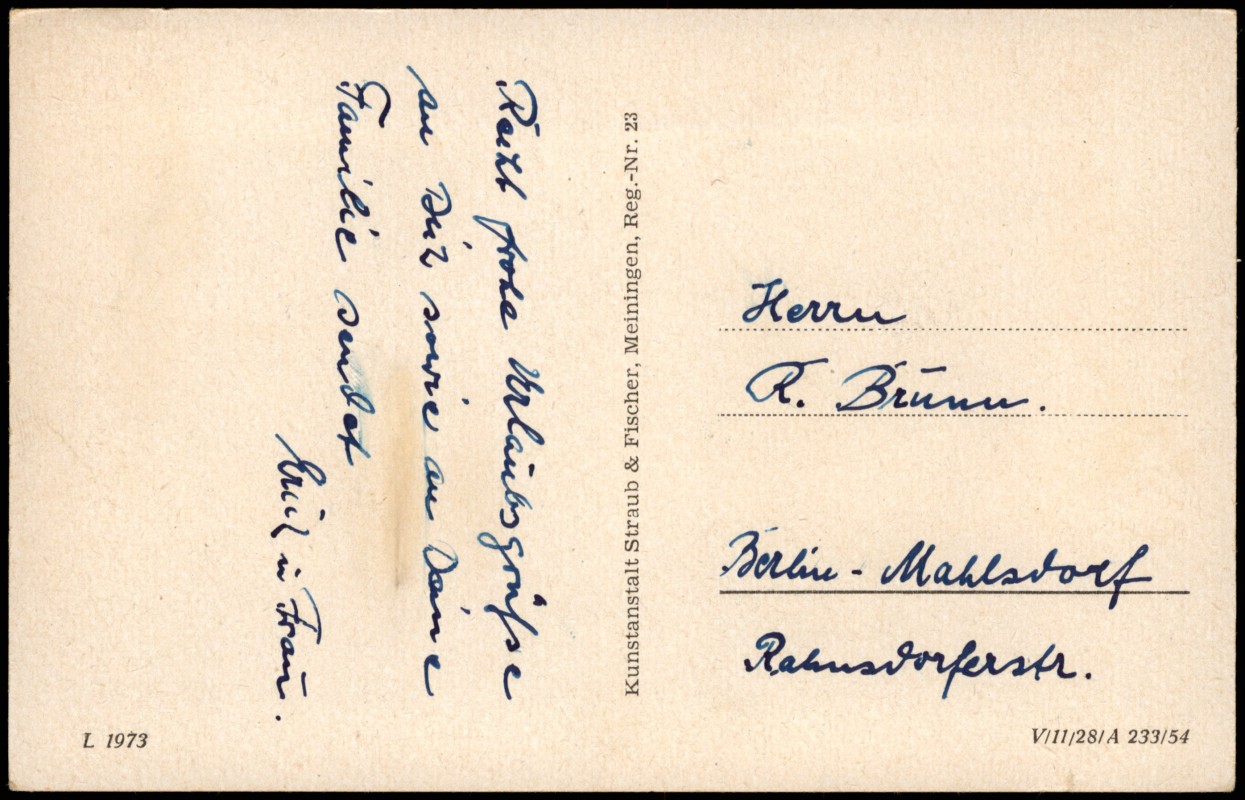 Recht frohe Urlaubsgrüße
an Dich sowie an Deine
Familie sendet
Erich u Frau.
Kunstanstalt Straub & Fischer, Meiningen, Reg.-Nr. 23
Herrn
R. Brunn.
Berlin-Mahlsdorf
Rahnsdorferstr.
L 1973
V/11/28/A 233/54